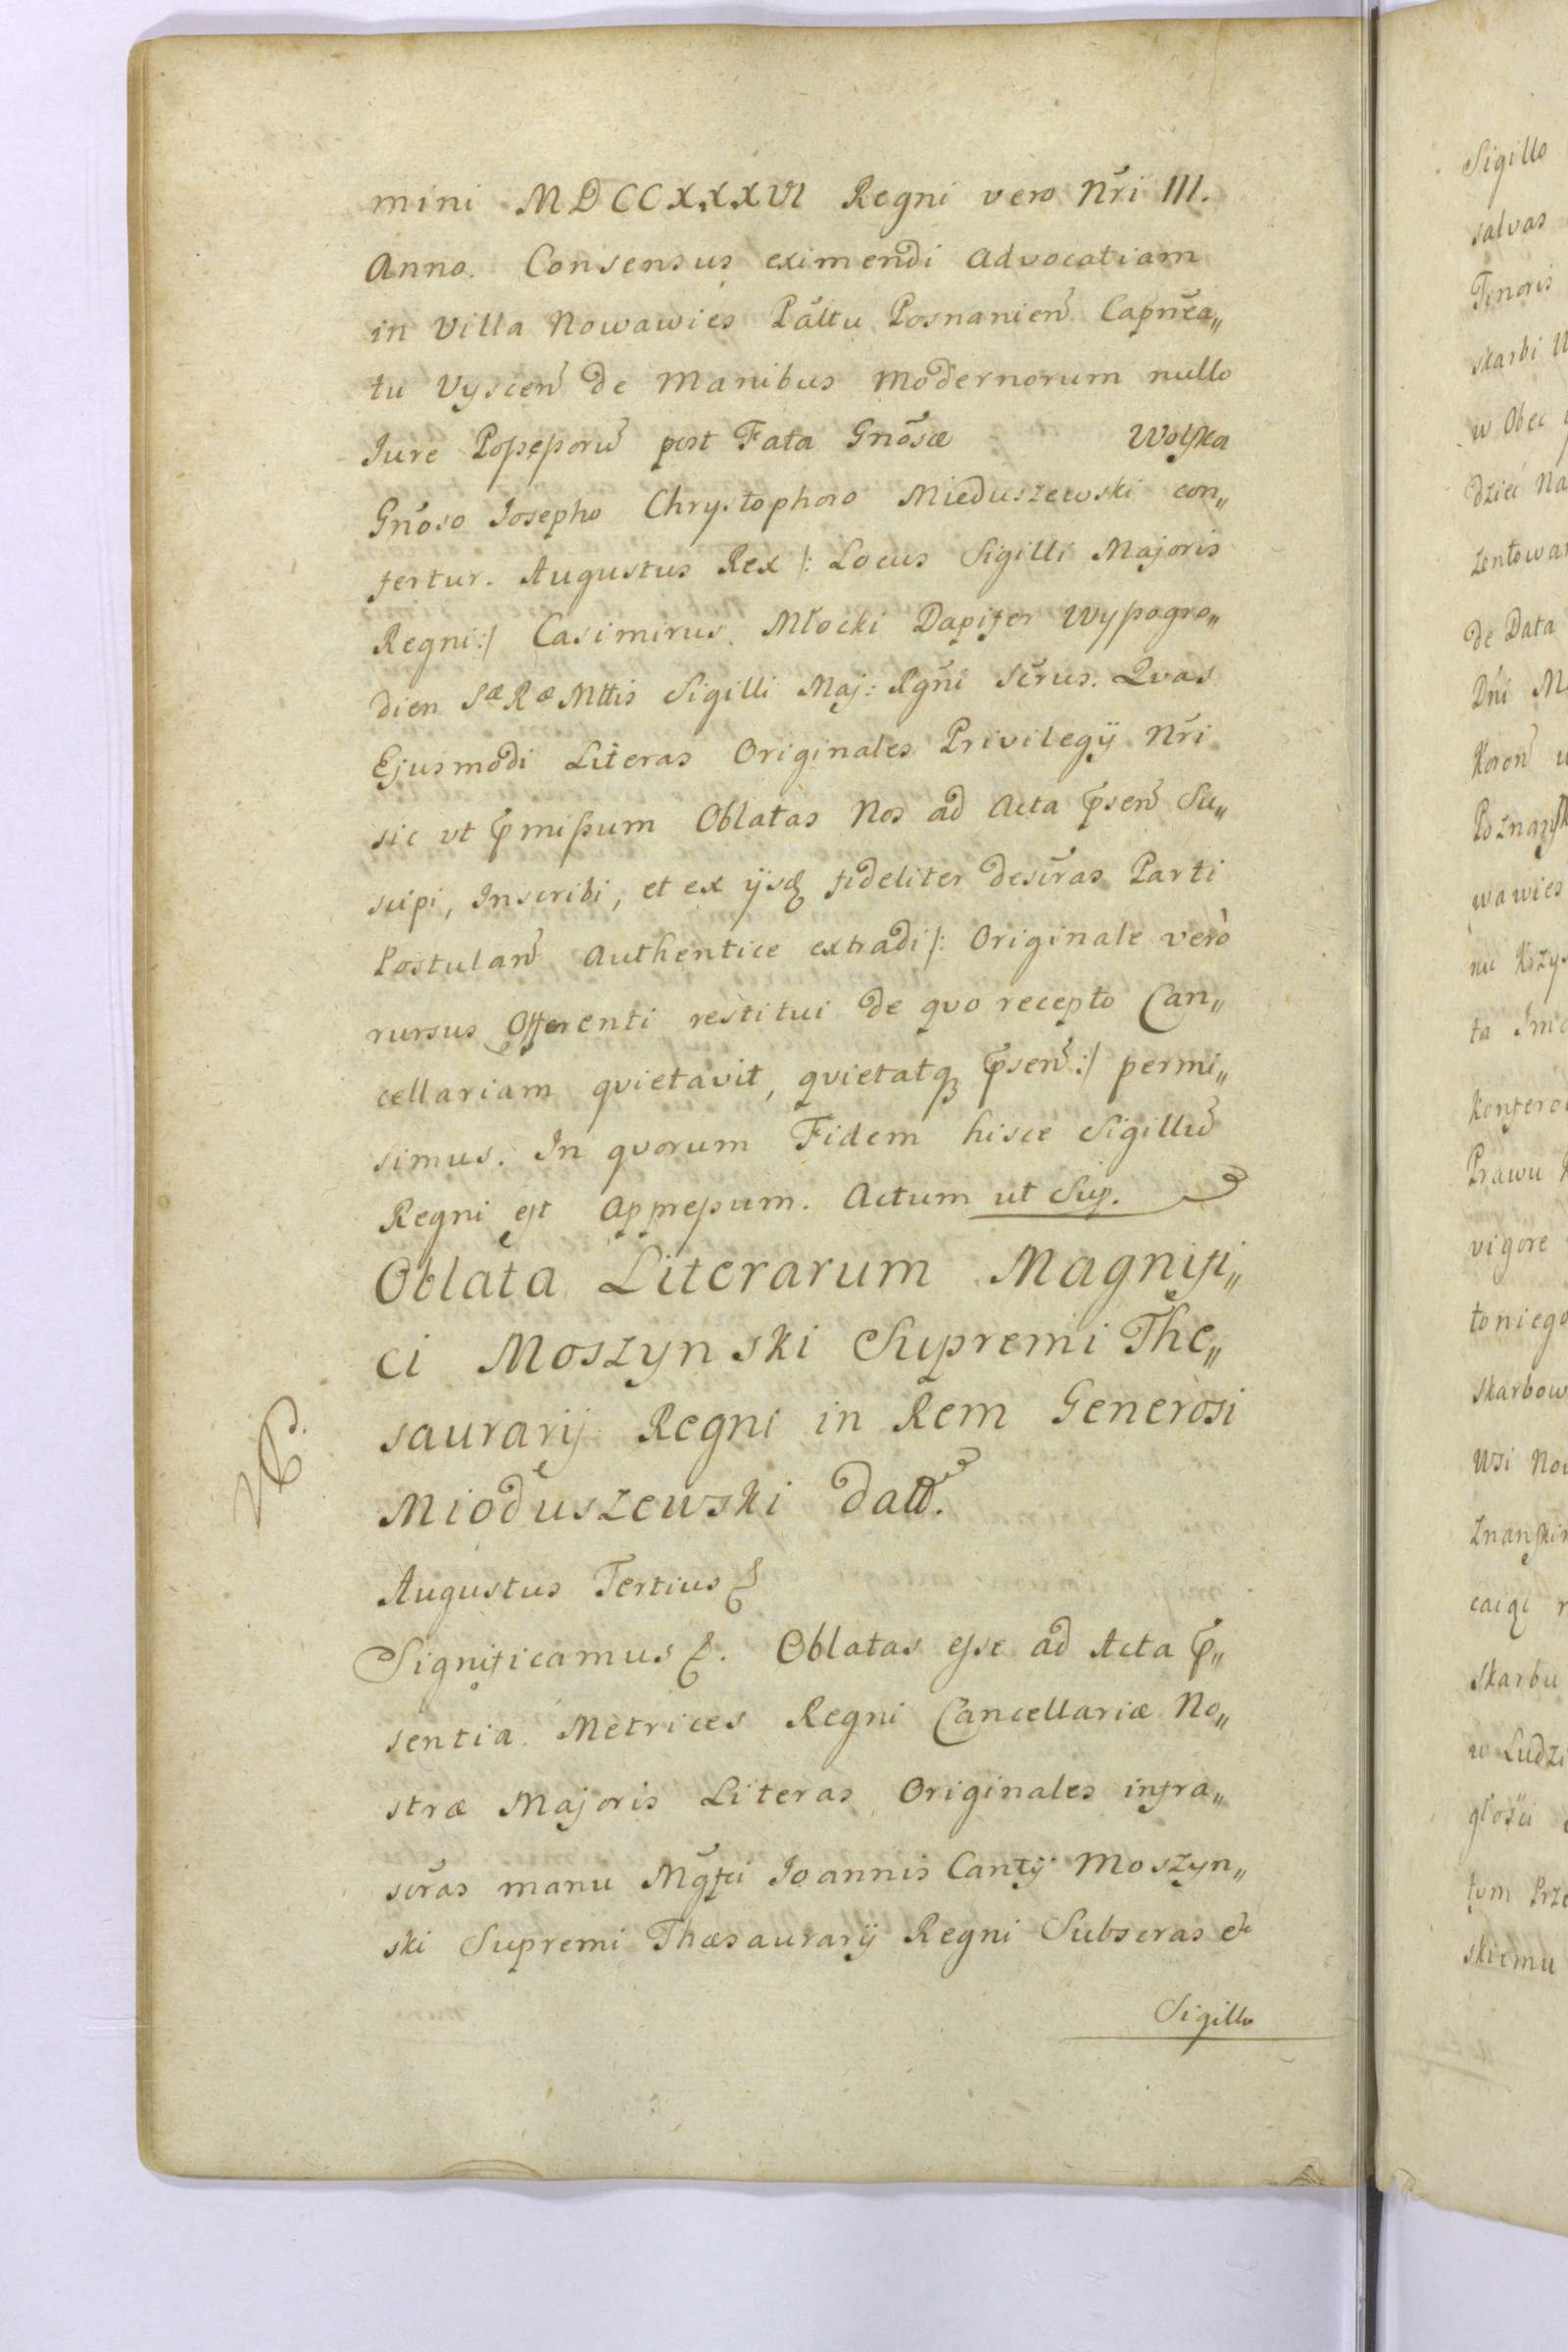 mini MDCCXXXVI Regni vero Nr̃i III.
Anno. Consensus eximendi Advocatiam
in Villa Nowawies Pãltu Posnanien̄ Capnẽa„
tu Uyscen̄ de Manibus Modernorum nullo
Jure Possessorū post Fata Gnõsæ Wolska
Gnõso Josepho Chrystophoro Mieduszewski con„
fertur. Augustus Rex /: Locus Sigilli Majoris
Regni:/ Casimirus Młocki Dapifer Wyssogro„
dien Sæ Ræ Mttis Sigilli Maj: Rgñi Scr̃us. Qvas
Ejusmodi Literas Originales Privilegÿ Nr̃i
sic ut p̃missum Oblatas Nos ad Acta p̃sen̄ Su„
scipi, Inscribi, et ex ÿsq̃ fideliter descr̃as Parti
Postulan̄ Authentice extradi /: Originale verò
rursus Offerenti restitui de qvo recepto Can„
cellariam qvietavit, qvietatq̃ p̃sen̄:/ permi„
simus. In qvorum Fidem hisce Sigillū
Regni est Appressum. Actum ut Sup.
Oblata Literarum Magnifi„
ci Moszynski Supremi The„
saurarij Regni in Rem Generosi
Mioduszewski datt̃.
Augustus Tertius &
Significamus &. Oblatas esse ad Acta p̃„
sentia Metrices Regni Cancellariæ No„
stræ Majoris Literas Originales infra„
scr̃as manu Mg̃fci Joannis Cantÿ Moszyn„
ski Supremi Thæsaurarÿ Regni Subscras &
Sigillo
Sigillo
salvas
Tenoris
skarbi
w Obec
dzieć Na
zentowan
de Data
Dñi M
Koron̄
Poznansk
wawies
nu Krzys
ta
Konfero
Prawu
vigore
to niego
skarbow
Wsi No
znanskim
skarbu
w Ludzi
głości
tym Prze
skiemu